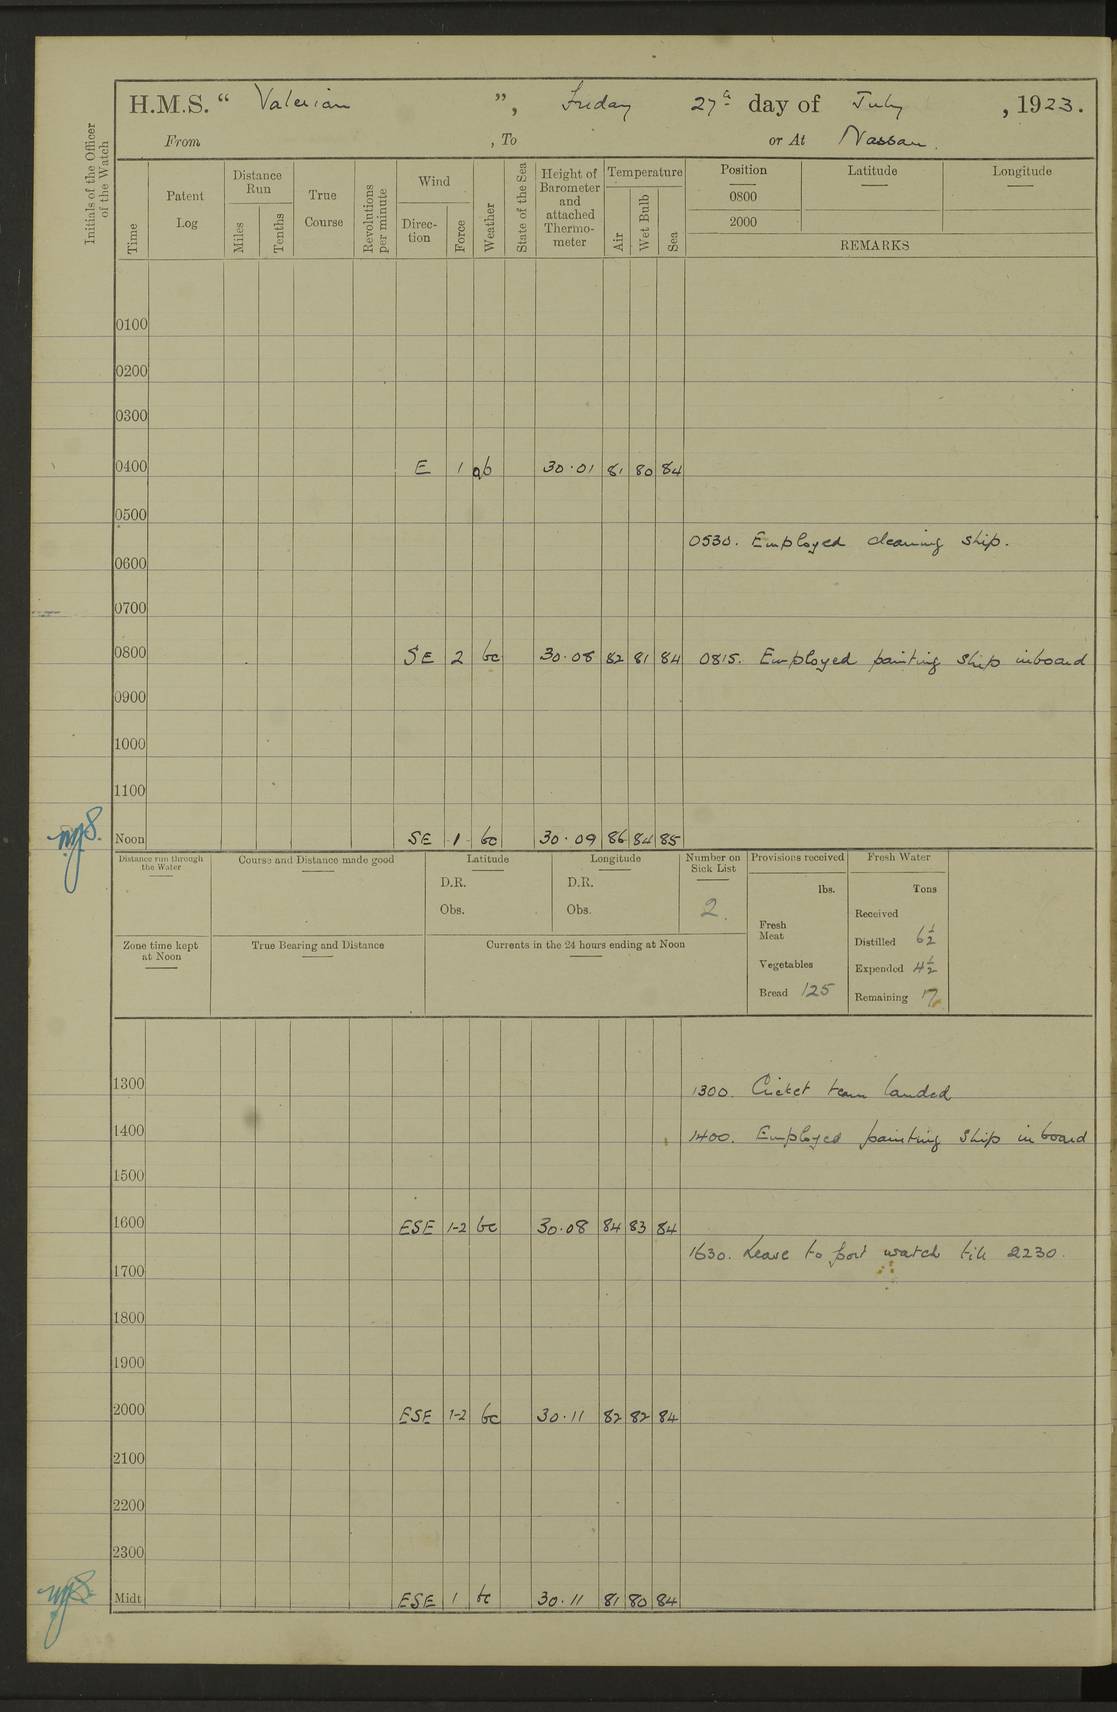 H.M.S. “ Valerian ”, Friday 27th day of July , 1923.
From , To or At Nassau.
Initials of the Officer of the Watch
Time
Patent Log
Distance Run
Miles
Tenths
True Course
Revolutions per minute
Wind
Direction
Force
Weather
State of the Sea
Height of Barometer and attached Thermometer
Temperature
Air
Wet Bulb
Sea
Position Latitude Longitude
0800
2000
REMARKS
0100
0200
0300
0400 E 1 b 30.01 81 80 84
0500
0530. Employed cleaning ship.
0600
0700
0800 SE 2 bc 30.08 82 81 84 0815. Employed painting ship inboard
0900
1000
1100
Noon SE 1 bc 30.09 86 84 85
Distance run through the Water
Course and Distance made good
Latitude
D.R.
Obs.
Longitude
D.R.
Obs.
Number on Sick List
2.
Provisions received
lbs.
Fresh Meat
Vegetables
Bread 125
Fresh Water
Tons
Received
Distilled 6½
Expended 4½
Remaining
Zone time kept at Noon
True Bearing and Distance
Currents in the 24 hours ending at Noon
1300 1300. Cricket team landed
1400 1400. Employed painting ship inboard
1500
1600 ESE 1-2 bc 30.08 84 83 84
1630. Leave to port watch till 2230.
1700
1800
1900
2000 ESE 1-2 bc 30.11 82 82 84
2100
2200
2300
Midt ESE 1 bc 30.11 81 80 84